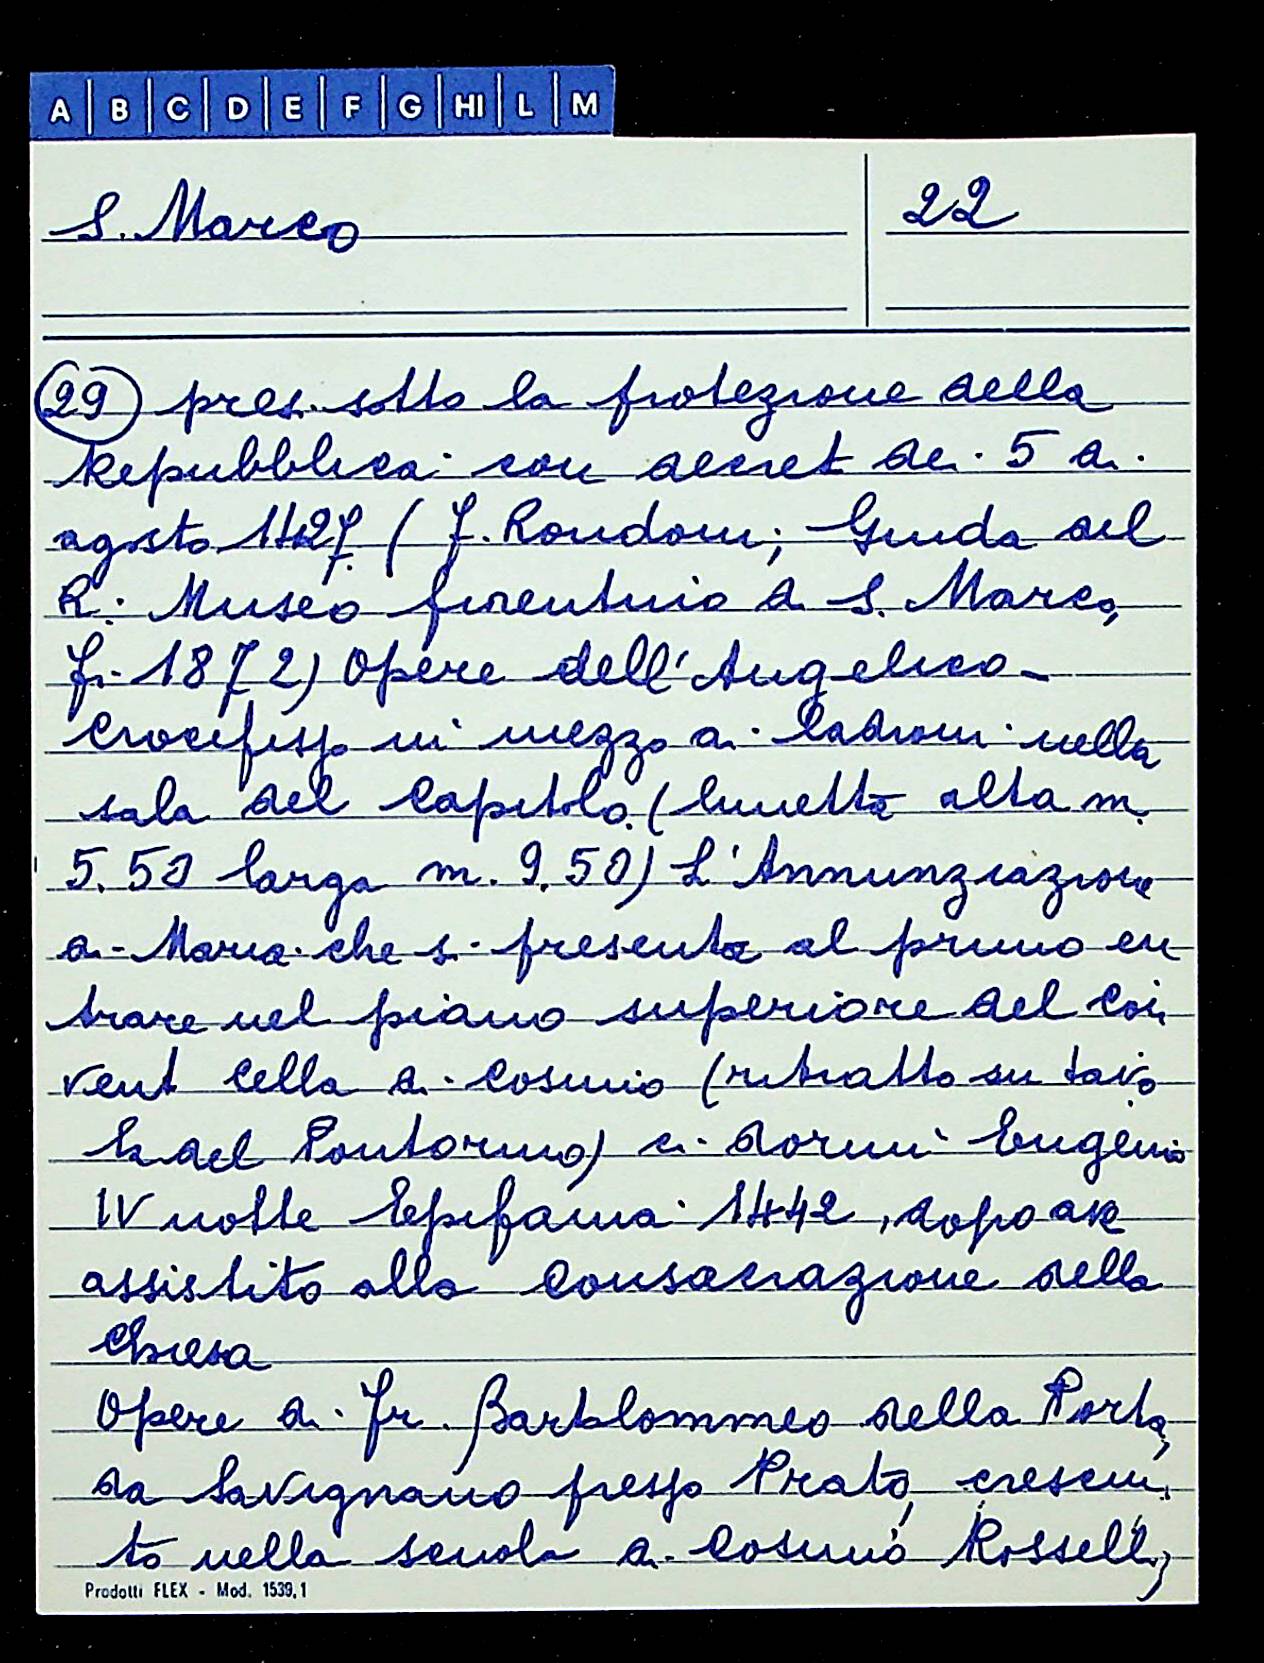 A B C D E F G HI L M
S. Marco 22
29 pres. sotto la protezione della
Repubblica con decret de. 5 di
agosto 1427 (F. Rondoni; Guida del
R. Museo fiorentino di S. Marco,
fi. 1872) Opere dell'Angelico_
Crocifisso in mezzo ai ladroni nella
sala del Capitolo. (lunetta alta m.
5.50 larga m. 9.50) L'Annunziazione
di Maria che si presenta al primo en
trare nel piano superiore del Con
vent cella di Cosimo (ritratto su tavo
la del Pontormo) ci dormì Eugenio
IV notte Epifania 1442, dopo
assistito alla Consacrazione della
Chiesa
Opere di Fr. Bartolommeo della Porta,
da Savignano presso Prato, cresciu
to nella scuola di Cosimo Rosselli,
Prodotti FLEX - Mod. 1539,1